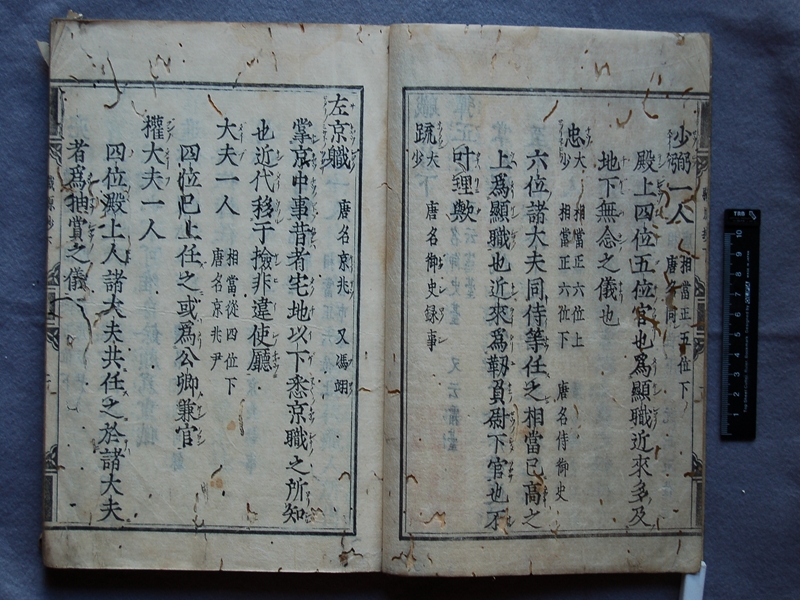 少弼一人 相當正五位下 唐名同
殿上四位五位官也爲顯職近來多及
地下無念之儀也
忠 大 相當正六位上 少 相當正六位下 唐名侍御史
六位諸大夫同侍等任之相當已高之
上爲顯職也近來爲靱負尉下官也不
叶理歟
疏 大 少 唐名御史録事
左京職 唐名京兆 又馮翊
掌京中事昔者宅地以下悉京職之所知
也近代移于撿非違使廳
大夫一人 相當從四位下 唐名京兆尹
四位已上任之或爲公卿兼官
權大夫一人
四位殿上人諸大夫共任之於諸大夫
者爲抽賞之儀